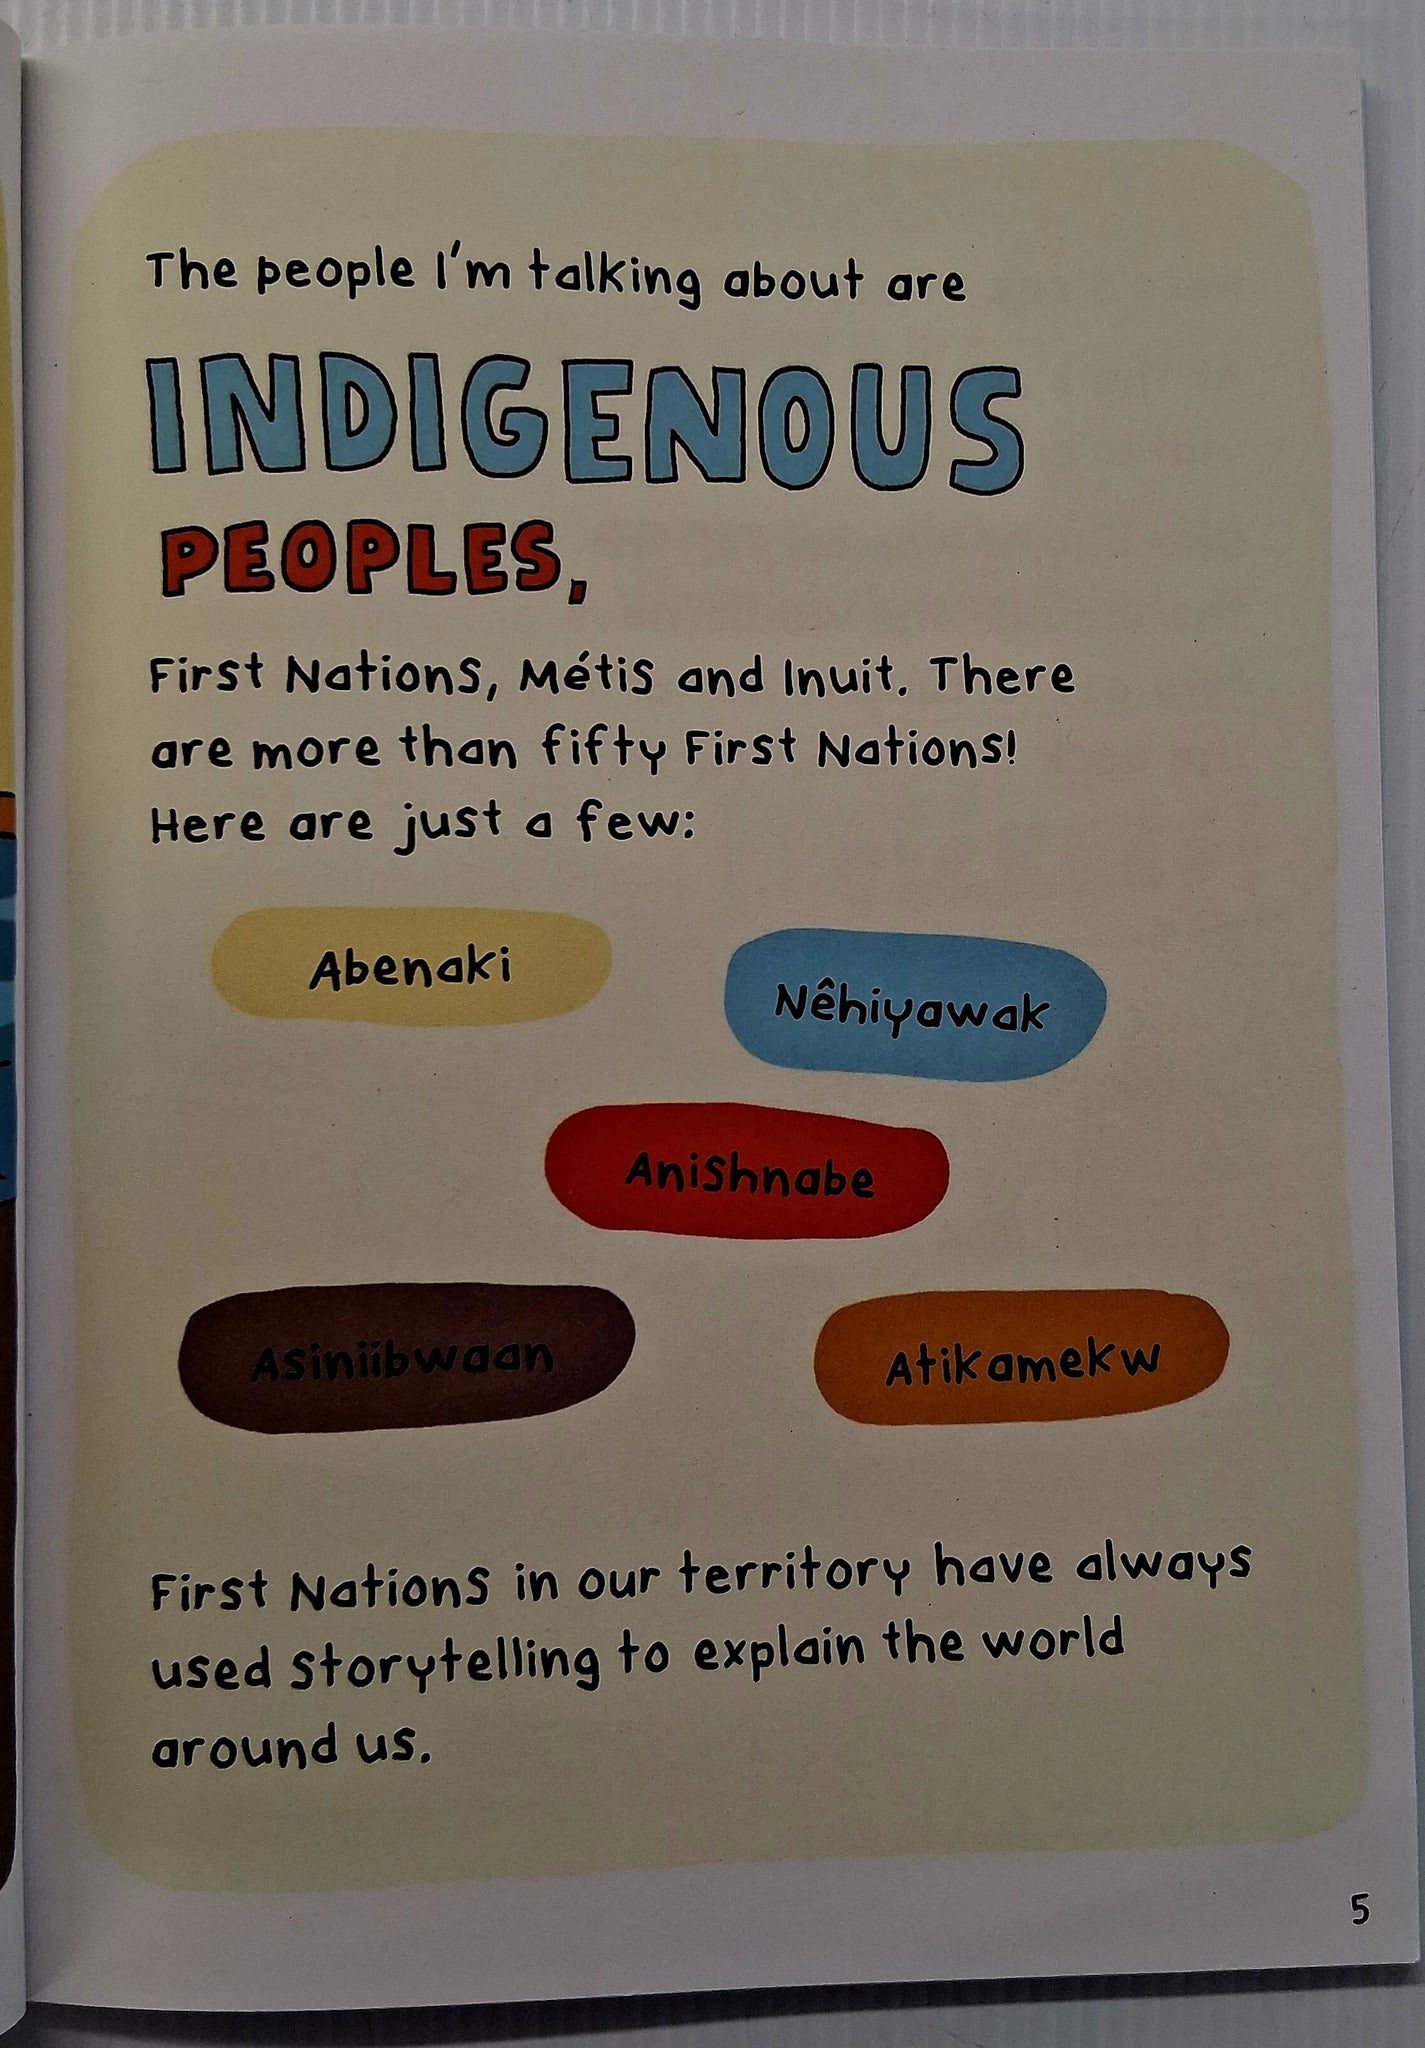 The people I'm talking about are
INDIGENOUS
PEOPLES,
First Nations, Métis and Inuit. There
are more than fifty First Nations!
Here are just a few:
Abenaki
Nêhiyawak
Anishnabe
Asiniibwaan
Atikamekw
First Nations in our territory have always
used storytelling to explain the world
around us.
5